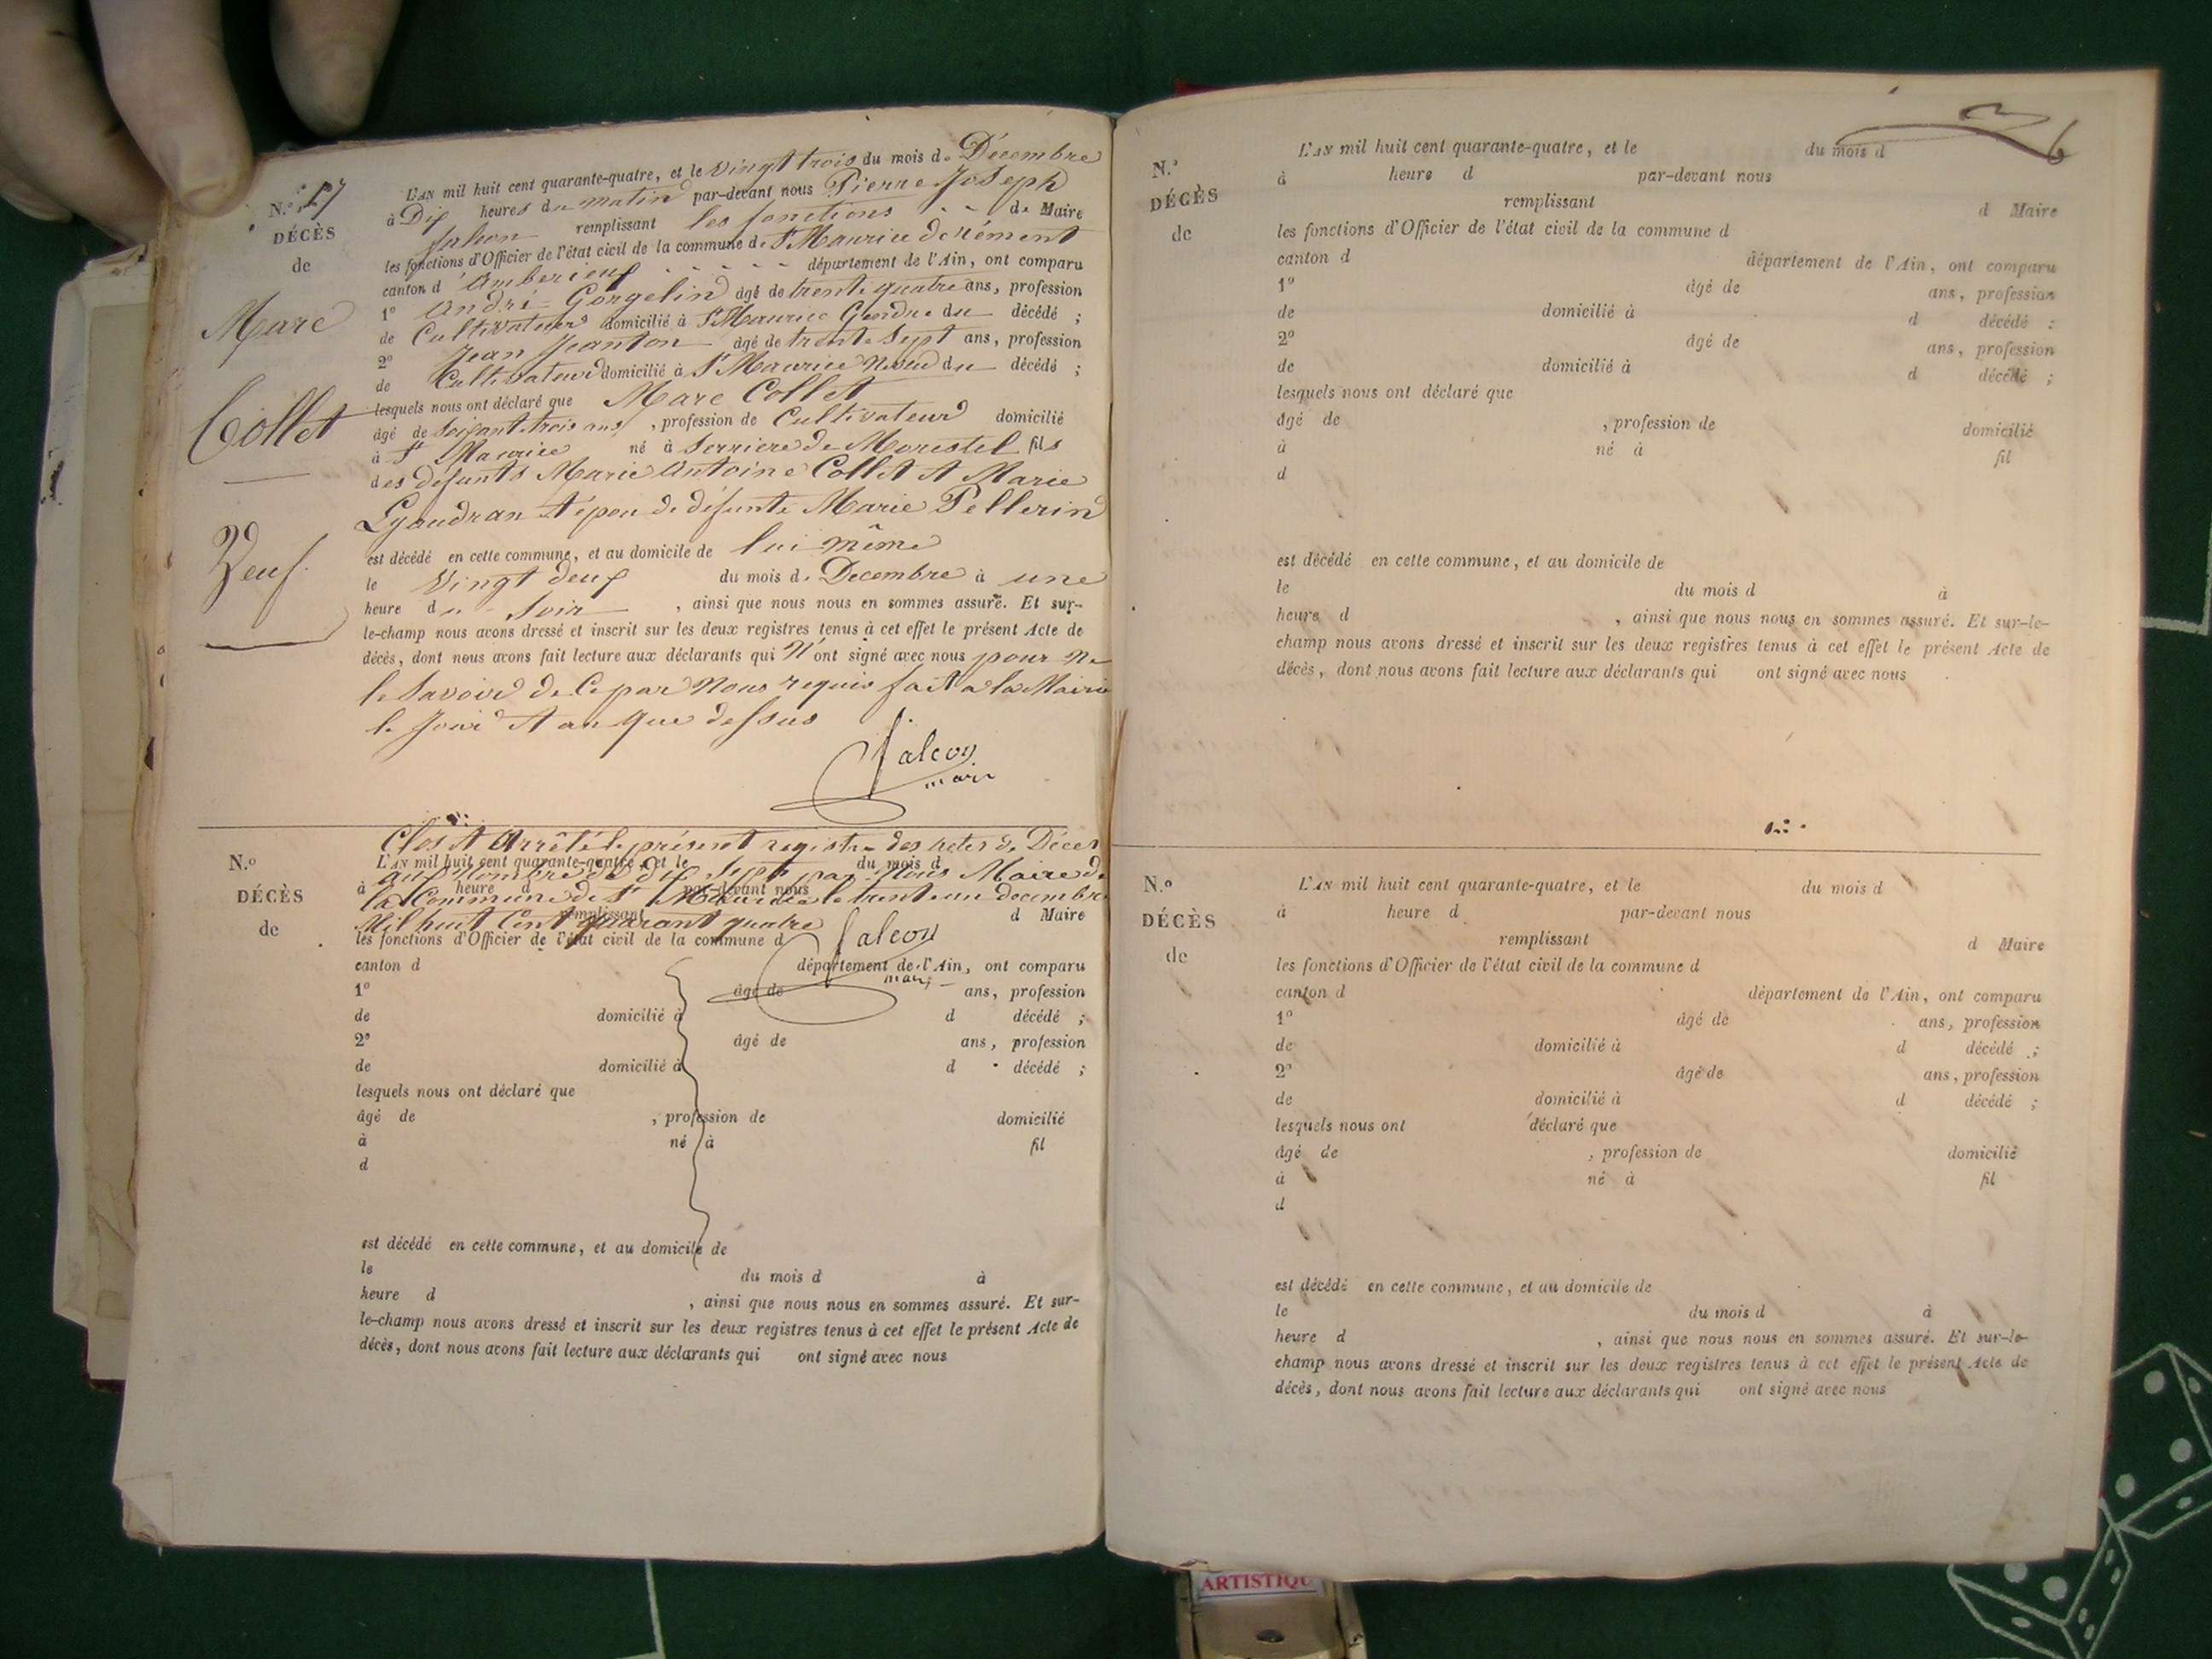 N.º 17
DÉCÈS
de
Marc
Collet
Veuf.
L'AN mil huit cent quarante-quatre, et le Vingt trois du mois de Décembre
à Dix heures du matin par-devant nous Pierre Joseph
falcon remplissant les fonctions de Maire
les fonctions d'Officier de l'état civil de la commune de St Maurice de rément
canton d'Amberieux département de l'Ain, ont comparu
1º André Gorgelin âgé de trente quatre ans, profession
de Cultivateur domicilié à St Maurice Gendre du décédé ;
2º Jean Jeanton âgé de trente Sept ans, profession
de Cultivateur domicilié à St Maurice Neveu du décédé ;
lesquels nous ont déclaré que Marc Collet
âgé de Soixante trois ans, profession de Cultivateur domicilié
à St Maurice né à Serriere de Morestel fils
des défunts Marie Antoine Collet et Marie
et époux de défunte Marie Pellerin
est décédé en cette commune, et au domicile de lui même
le Vingt deux du mois de Decembre à une
heure du Soir, ainsi que nous nous en sommes assuré. Et sur-
le-champ nous avons dressé et inscrit sur les deux registres tenus à cet effet le présent Acte de
décès, dont nous avons fait lecture aux déclarants qui N'ont signé avec nous pour ne
le Savoir de Ce par Nous requis fait a la Mairie
le Jour et an que dessus
falcon
maire
Clos et Arrêté le présent registre des Actes de Décès
au Nombre de dix Sept par Nous Maire de
la Commune de St Maurice le trente un decembre
Mil huit Cent quarant quatre
falcon
maire
N.º
DÉCÈS
de
L'AN mil huit cent quarante-quatre, et le du mois d
à heure d par-devant nous
remplissant d Maire
les fonctions d'Officier de l'état civil de la commune d
canton d département de l'Ain, ont comparu
1º âgé de ans, profession
de domicilié à d décédé ;
2º âgé de ans, profession
de domicilié à d décédé ;
lesquels nous ont déclaré que
âgé de , profession de domicilié
à né à fil
d
est décédé en cette commune, et au domicile de
le du mois d à
heure d , ainsi que nous nous en sommes assuré. Et sur-
le-champ nous avons dressé et inscrit sur les deux registres tenus à cet effet le présent Acte de
décès, dont nous avons fait lecture aux déclarants qui ont signé avec nous
6
N.º
DÉCÈS
de
L'AN mil huit cent quarante-quatre, et le du mois d
à heure d par-devant nous
remplissant d Maire
les fonctions d'Officier de l'état civil de la commune d
canton d département de l'Ain, ont comparu
1º âgé de ans, profession
de domicilié à d décédé :
2º âgé de ans, profession
de domicilié à d décédé ;
lesquels nous ont déclaré que
âgé de , profession de domicilié
à né à fil
d
est décédé en cette commune, et au domicile de
le du mois d à
heure d , ainsi que nous nous en sommes assuré. Et sur-le-
champ nous avons dressé et inscrit sur les deux registres tenus à cet effet le présent Acte de
décès, dont nous avons fait lecture aux déclarants qui ont signé avec nous
N.º
DÉCÈS
de
L'AN mil huit cent quarante-quatre, et le du mois d
à heure d par-devant nous
remplissant d Maire
les fonctions d'Officier de l'état civil de la commune d
canton d département de l'Ain, ont comparu
1º âgé de ans, profession
de domicilié à d décédé ;
2º âgé de ans, profession
de domicilié à d décédé ;
lesquels nous ont déclaré que
âgé de , profession de domicilié
à né à fil
d
est décédé en cette commune, et au domicile de
le du mois d à
heure d , ainsi que nous nous en sommes assuré. Et sur-le-
champ nous avons dressé et inscrit sur les deux registres tenus à cet effet le présent Acte de
décès, dont nous avons fait lecture aux déclarants qui ont signé avec nous
ARTISTIQU